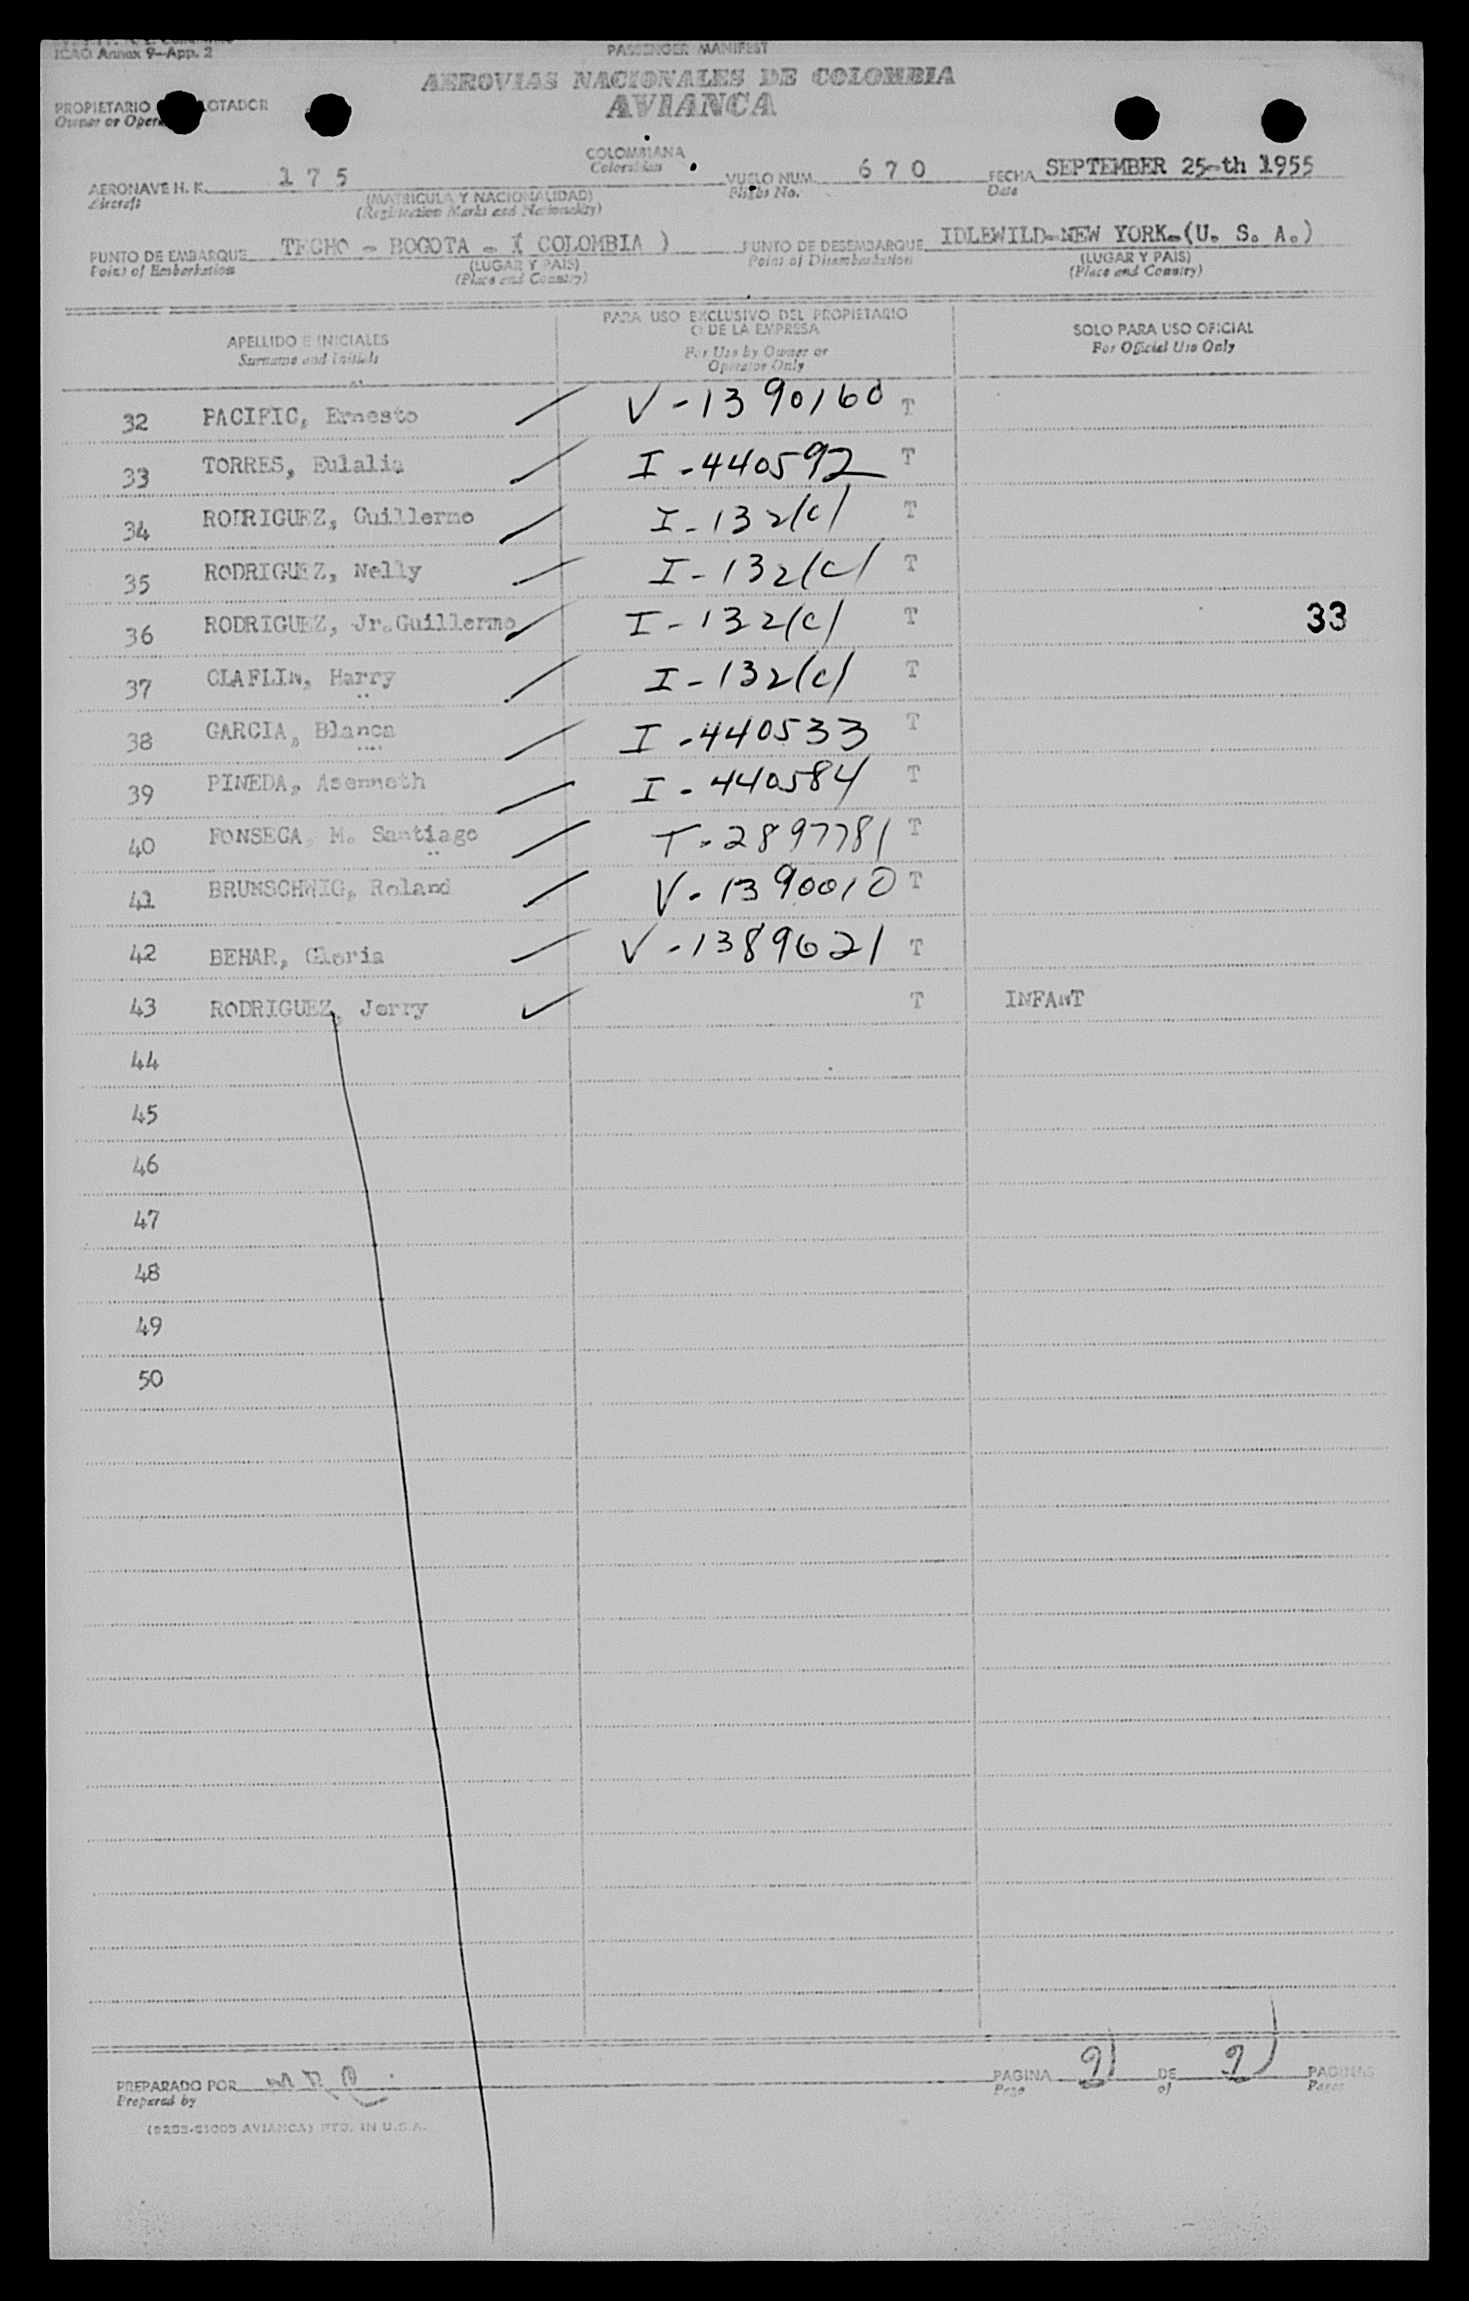 ICAO Annex 9-App. 2
PASSENGER MANIFEST
AEROVIAS NACIONALES DE COLOMBIA
AVIANCA
PROPIETARIO OTADOR
Owner or Oper
COLOMBIANA
Colombian
AERONAVE H. K. 175
Aircraft
(MATRICULA Y NACIONALIDAD)
(Registration Marks and Nationality)
VUELO NUM. 670
Flight No.
FECHA SEPTEMBER 25-th 1955
Date
PUNTO DE EMBARQUE TECHO - BOGOTA - ( COLOMBIA )
Point of Embarkation
(LUGAR Y PAIS)
(Place and Country)
PUNTO DE DESEMBARQUE IDLEWILD-NEW YORK-(U. S. A.)
Point of Disembarkation
(LUGAR Y PAIS)
(Place and Country)
APELLIDO E INICIALES
Surname and Initials
PARA USO EXCLUSIVO DEL PROPIETARIO
O DE LA EMPRESA
For Use by Owner or
Operator Only
SOLO PARA USO OFICIAL
For Official Use Only
32 PACIFIC, Ernesto V-1390160 T
33 TORRES, Eulalia I-440592 T
34 RODRIGUEZ, Guillermo I-132(c) T
35 RODRIGUEZ, Nelly I-132(c) T
36 RODRIGUEZ, Jr.Guillermo I-132(c) T 33
37 CLAFLIN, Harry I-132(c) T
38 GARCIA, Blanca I-440533 T
39 PINEDA, Asenneth I-440584 T
40 FONSECA, M. Santiago T-2897781 T
41 BRUNSCHWIG, Roland V-1390010 T
42 BEHAR, Gloria V-1389621 T
43 RODRIGUEZ, Jerry T INFANT
44
45
46
47
48
49
50
PREPARADO POR
Prepared by
PAGINA 2 DE 2 PAGINAS
Page of Pages
AVIANCA) PTD. IN U.S.A.